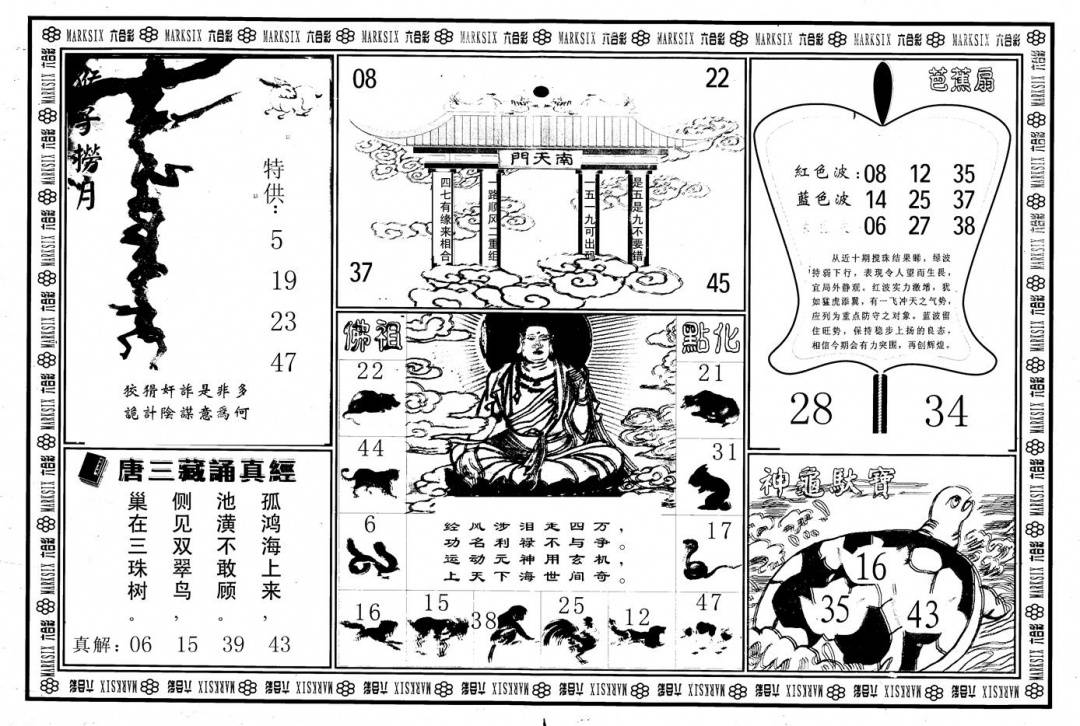 MARKSIX 六合彩 MARKSIX 六合彩 MARKSIX 六合彩 MARKSIX 六合彩 MARKSIX 六合彩 MARKSIX 六合彩 MARKSIX 六合彩 MARKSIX 六合彩 MARKSIX 六合彩 MARKSIX 六合彩
猴子撈月
特供：
5
19
23
47
狡猾奸詐是非多
詭計陰謀意為何
08
22
南天門
四七有缘来相合
一路顺风二重组
一五一九可出码
是五是九不要错
37
45
芭蕉扇
紅色波：08 12 35
藍色波 14 25 37
06 27 38
从近十期搅珠结果睇，绿波
特弱下行，表现令人望而生畏，
宜局外静观。红波实力激增，犹
如猛虎添翼，有一飞冲天之气势，
应列为重点防守之对象。蓝波留
住旺势，保持稳步上扬的良态，
相信今期会有力突围，再创辉煌。
28
34
佛祖
點化
22
21
44
31
6
17
经风涉泪走四方，
功名利禄不与争。
运动元神用玄机，
上天下海世间奇。
16
15
38
25
12
47
唐三藏誦真經
孤鸿海上来，
池潢不敢顾。
侧见双翠鸟，
巢在三珠树。
真解：06 15 39 43
神龜馱寶
16
35
43